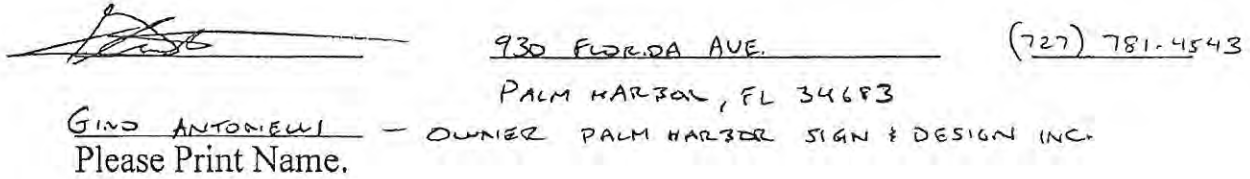 930 FLORIDA AVE. (727) 781-4543
PALM HARBOR, FL 34683
GINO ANTONELLI — OWNER PALM HARBOR SIGN & DESIGN INC.
Please Print Name.